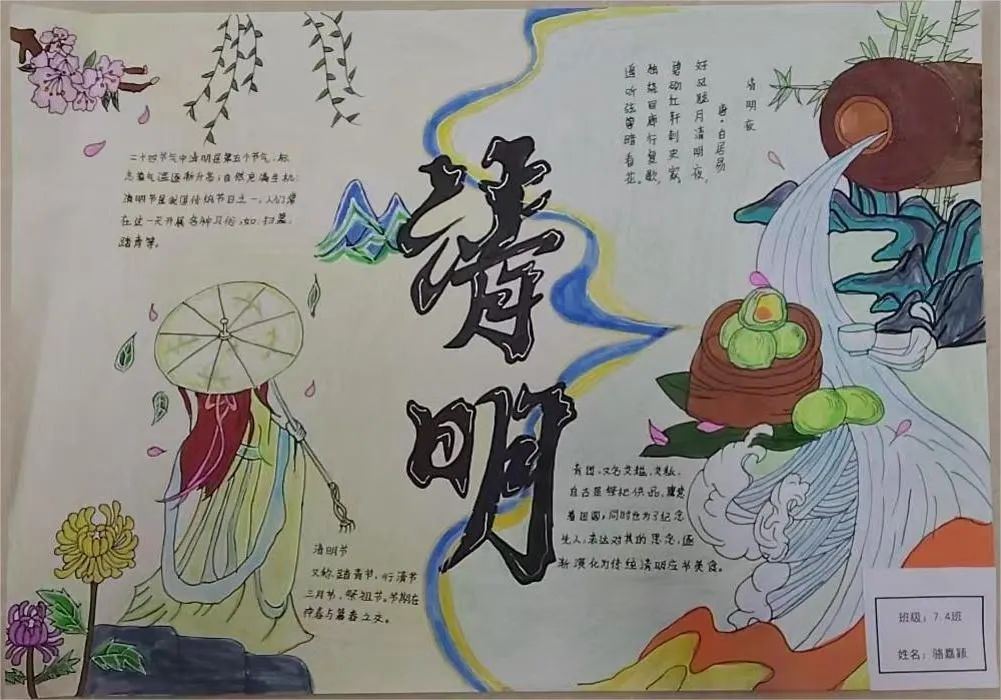 清明
二十四节气中清明是第五个节气，标
志着气温逐渐升高，自然充满生机；
清明节是我国传统节日之一，人们常
在这一天开展各种习俗，如：扫墓，
踏青等。
清明夜
唐·白居易
好风胧月清明夜，
碧砌红轩刺史家。
独绕回廊行复歇，
遥听弦管暗看花。
清明节
又称，踏青节，行清节
三月节，祭祖节。节期在
仲春与暮春之交。
青团，又名艾糍、艾粄，
自古是祭祀供品，
着团圆，同时也为了纪念
先人，表达对其的思念，逐
渐演化为传统清明应节美食。
班级：7.4班
姓名：骆嘉颖